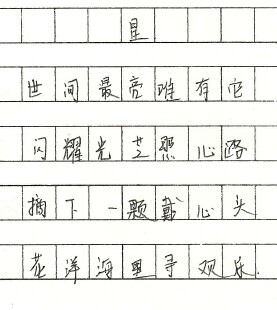 星
世间最亮唯有它
闪耀光芒照心路
摘下一颗戴心头
花洋海里寻欢乐.